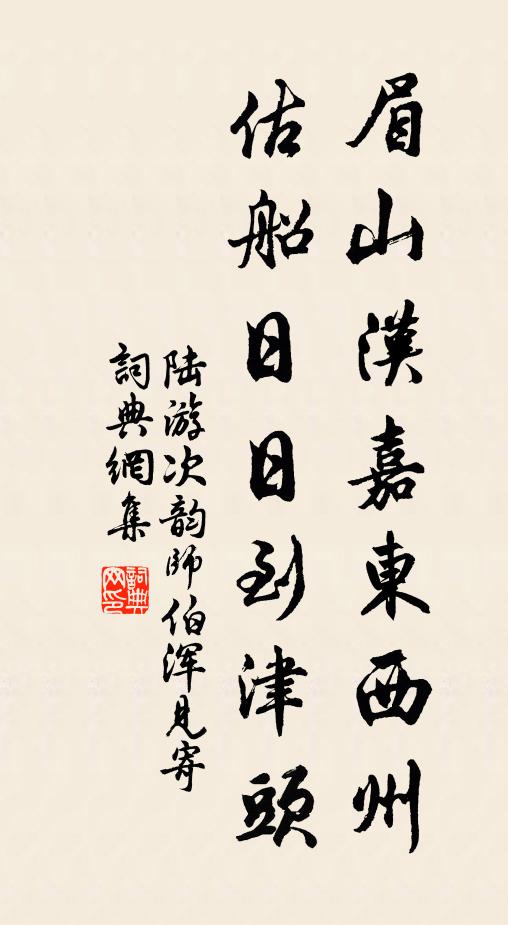 眉山漢嘉東西州
估船日日到津頭
陆游次韵師伯渾見寄
詞典網集
詞典
网印